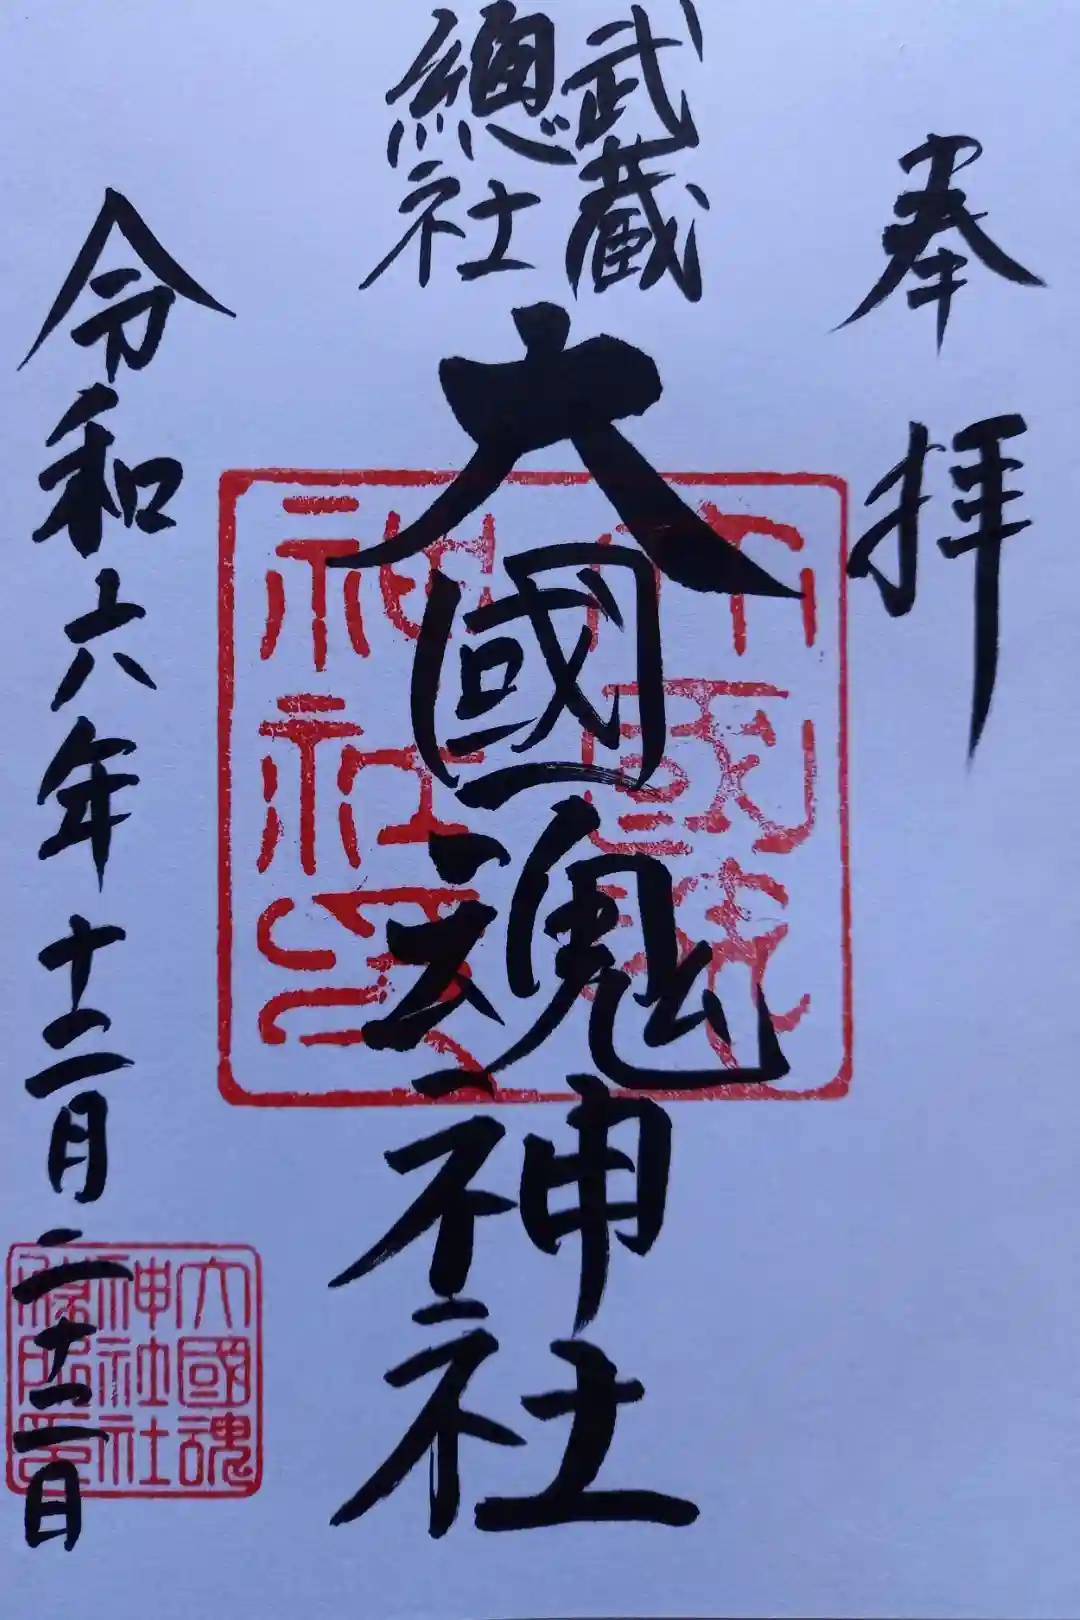 奉拝
武蔵
總社
大國魂神社
大國魂
神社印
令和六年十二月二十二日
大國魂
神社社
務所印